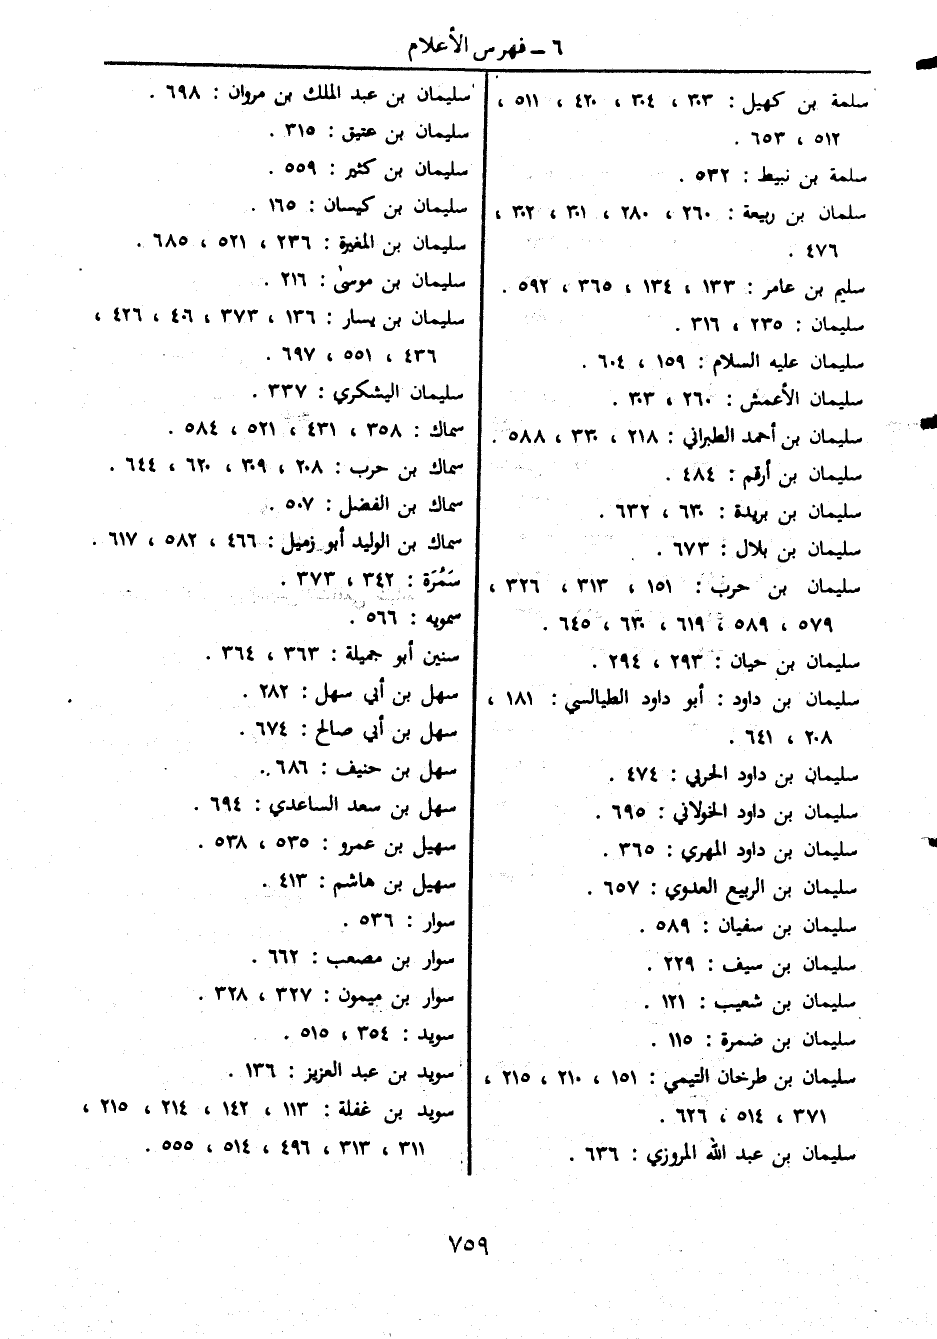 ٦ ــ فهرس الأعلام
سلمة بن كهيل : ٣٠٣ ، ٣٠٤ ، ٤٢٠ ، ٥١١ ،
٥١٢ ، ٦٥٣ .
سلمة بن نبيط : ٥٣٢ .
سلمان بن ربيعة : ٢٦٠ ، ٢٨٠ ، ٣٠١ ، ٣٠٢ ،
٤٧٦ .
سليم بن عامر : ١٣٣ ، ١٣٤ ، ٣٦٥ ، ٥٩٢ .
سليمان : ٢٣٥ ، ٣١٦ .
سليمان عليه السلام : ١٥٩ ، ٦٠٤ .
سليمان الأعمش : ٢٦٠ ، ٣٠٣ .
سليمان بن أحمد الطبراني : ٢١٨ ، ٣٣٠ ، ٥٨٨ .
سليمان بن أرقم : ٤٨٤ .
سليمان بن بريدة : ٦٣٠ ، ٦٣٢ .
سليمان بن بلال : ٦٧٣ .
سليمان بن حرب : ١٥١ ، ٣١٣ ، ٣٢٦ ،
٥٧٩ ، ٥٨٩ ، ٦١٩ ، ٦٣٠ ، ٦٤٥ .
سليمان بن حيان : ٢٩٣ ، ٢٩٤ .
سليمان بن داود : أبو داود الطيالسي : ١٨١ ،
٢٠٨ ، ٦٤١ .
سليمان بن داود الحربي : ٤٧٤ .
سليمان بن داود الخولاني : ٦٩٥ .
سليمان بن داود المهري : ٣٦٥ .
سليمان بن الربيع العدوي : ٦٥٧ .
سليمان بن سفيان : ٥٨٩ .
سليمان بن سيف : ٢٢٩ .
سليمان بن شعيب : ١٢١ .
سليمان بن ضمرة : ١١٥ .
سليمان بن طرخان التيمي : ١٥١ ، ٢١٠ ، ٢١٥ ،
٣٧١ ، ٥١٤ ، ٦٢٦ .
سليمان بن عبد الله المروزي : ٦٣٦ .
سليمان بن عبد الملك بن مروان : ٦٩٨ .
سليمان بن عتيق : ٣١٥ .
سليمان بن كثير : ٥٥٩ .
سليمان بن كيسان : ١٦٥ .
سليمان بن المغيرة : ٢٣٦ ، ٥٢١ ، ٦٨٥ .
سليمان بن موسىٰ : ٢١٦ .
سليمان بن يسار : ١٣٦ ، ٣٧٣ ، ٤٠٦ ، ٤٢٦ ،
٤٣٦ ، ٥٥١ ، ٦٩٧ .
سليمان اليشكري : ٣٣٧ .
سماك : ٣٥٨ ، ٤٣١ ، ٥٢١ ، ٥٨٤ .
سماك بن حرب : ٢٠٨ ، ٣٠٩ ، ٦٢٠ ، ٦٤٤ .
سماك بن الفضل : ٥٠٧ .
سماك بن الوليد أبو زميل : ٤٦٦ ، ٥٨٢ ، ٦١٧ .
سَمُرَة : ٣٤٢ ، ٣٧٣ .
سمويه : ٥٦٦ .
سنين أبو جميلة : ٣٦٣ ، ٣٦٤ .
سهل بن أبي سهل : ٢٨٢ .
سهل بن أبي صالح : ٦٧٤ .
سهل بن حنيف : ٦٨٦ .
سهل بن سعد الساعدي : ٦٩٤ .
سهيل بن عمرو : ٥٣٥ ، ٥٣٨ .
سهيل بن هاشم : ٤١٣ .
سوار : ٥٣٦ .
سوار بن مصعب : ٦٦٢ .
سوار بن ميمون : ٣٢٧ ، ٣٢٨ .
سويد : ٣٥٤ ، ٥١٥ .
سويد بن عبد العزيز : ١٣٦ .
سويد بن غفلة : ١١٣ ، ١٤٢ ، ٢١٤ ، ٢١٥ ،
٣١١ ، ٣١٣ ، ٤٩٦ ، ٥١٤ ، ٥٥٥ .
٧٥٩